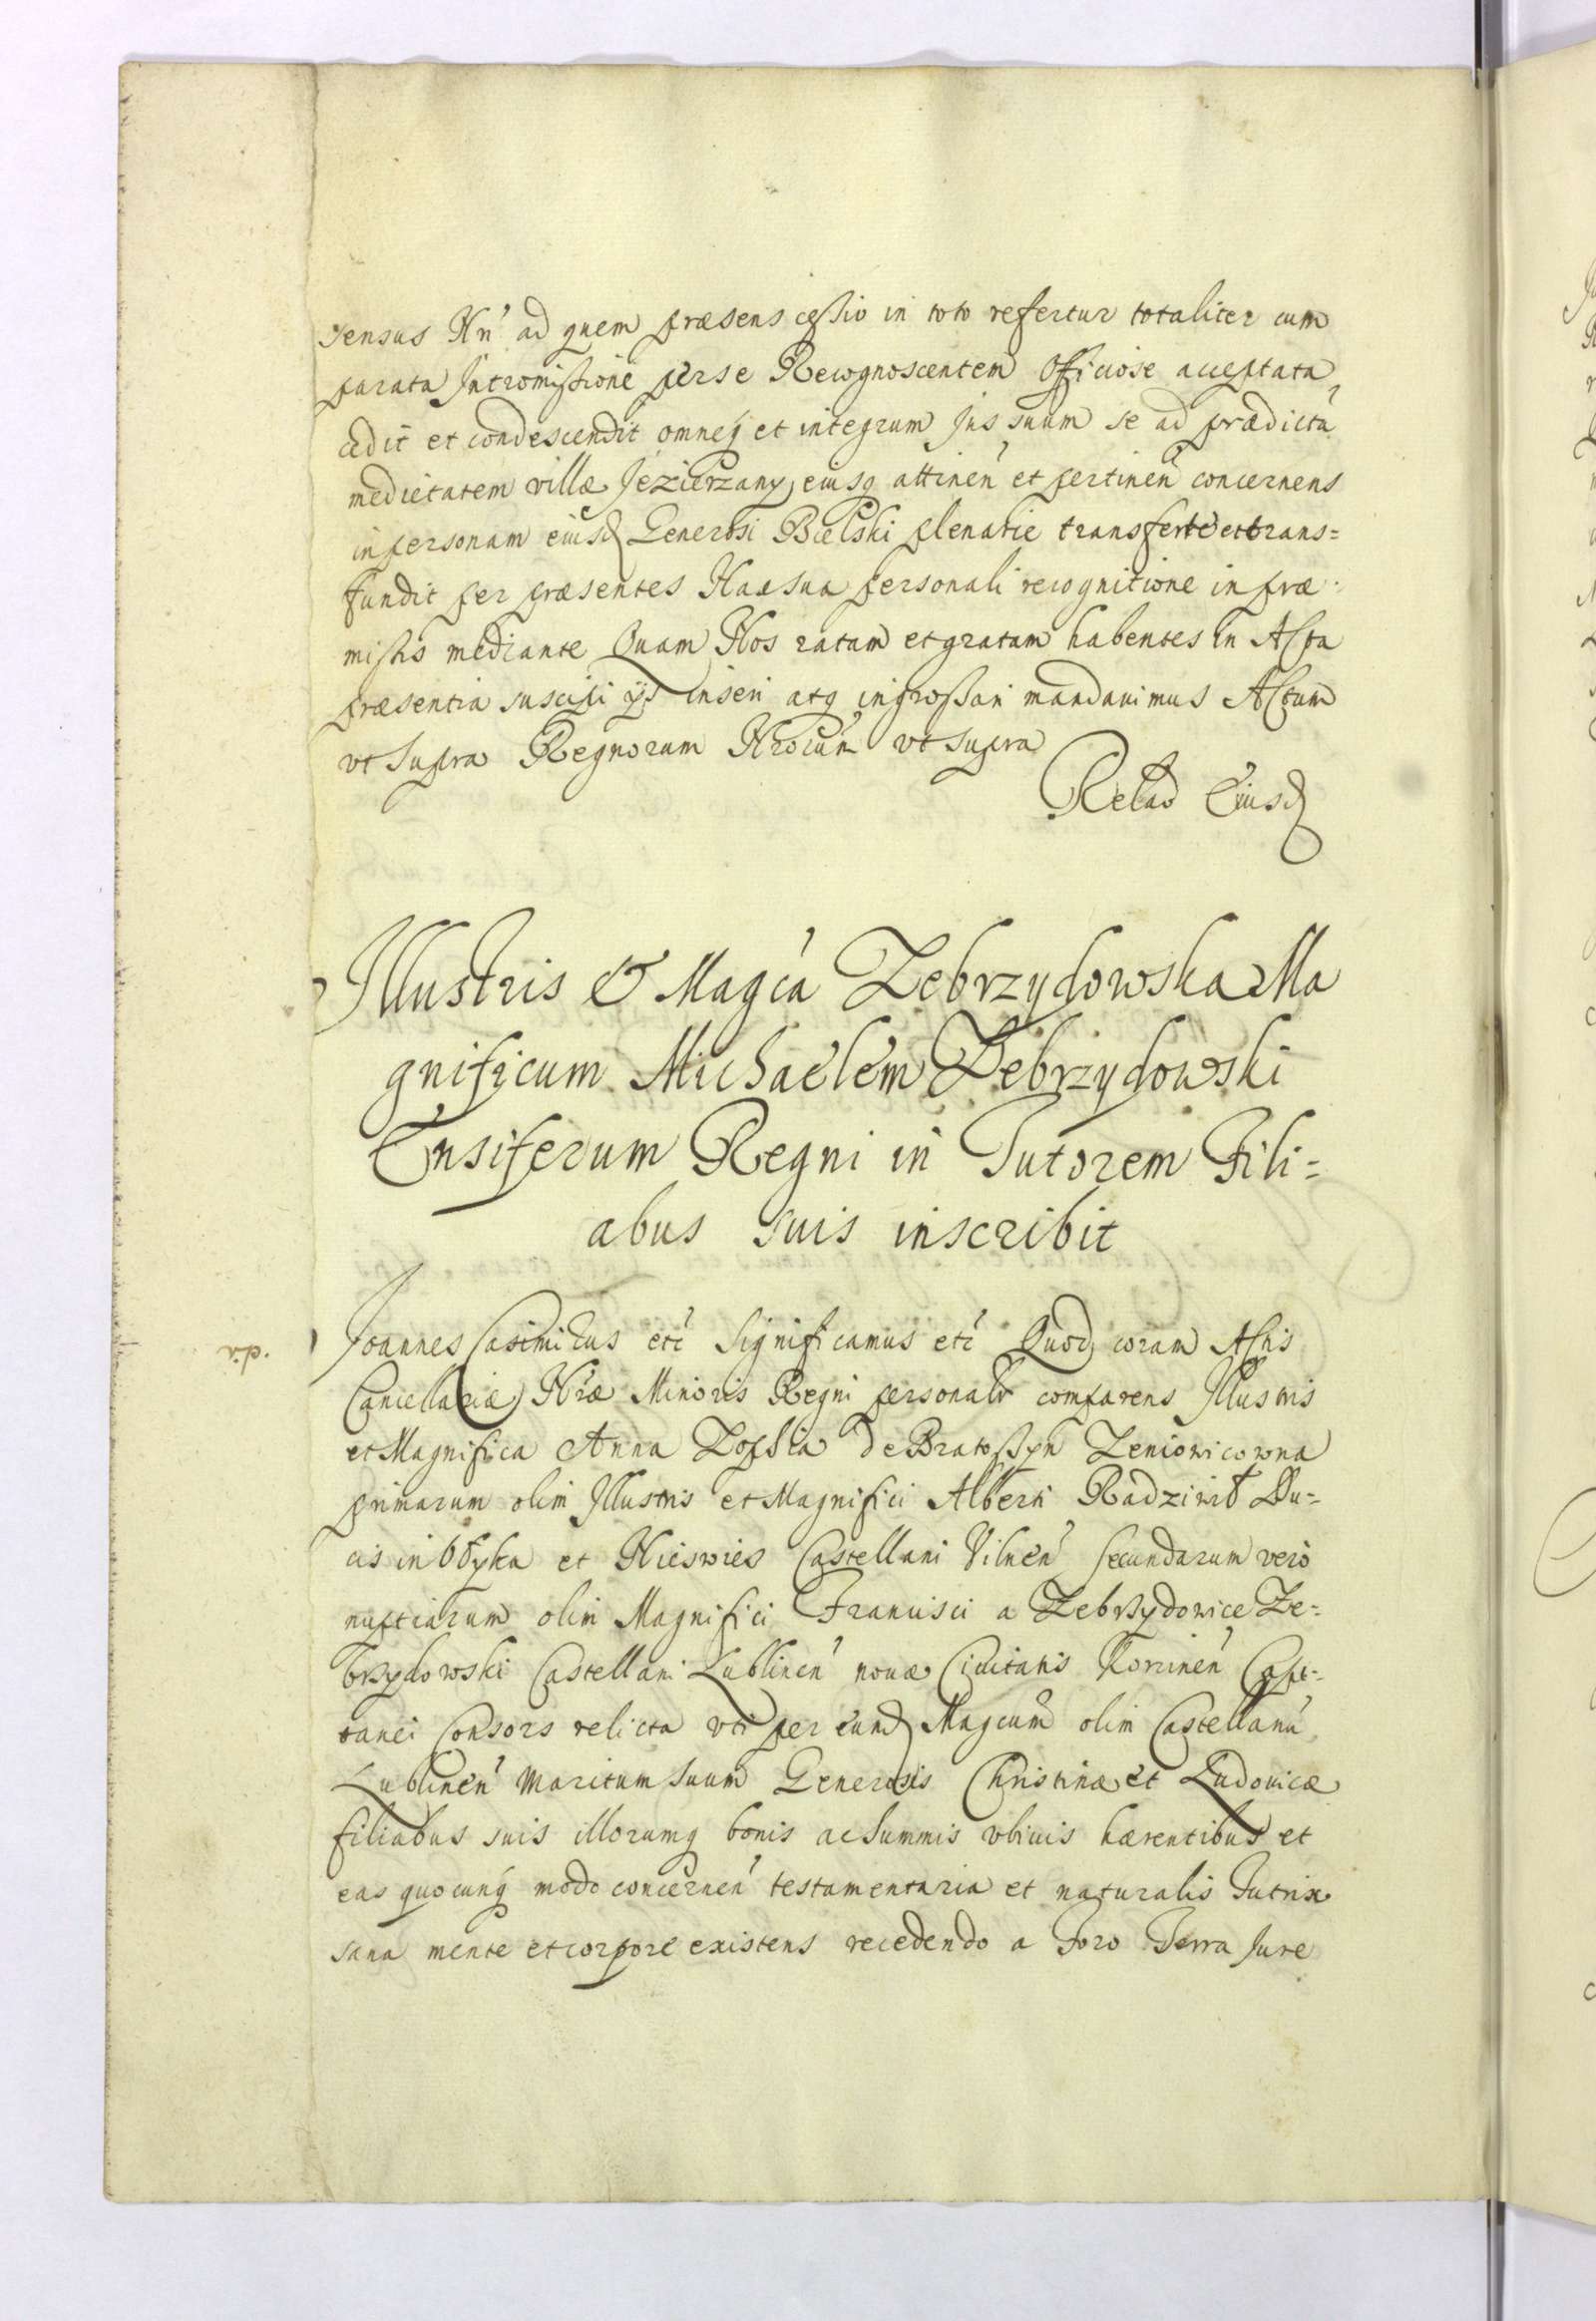 sensus Nrī ad quem præsens cessio in toto refertur totaliter cum
parata Intromissione per se Recognoscentem officiose acceptata
cedit et condescendit omneq et integrum jus suum se ad prædictā
medietatem villæ Jezierzany eiusq attinen̄ et pertinen̄ concernens
in personam eiusd Generosi Bielski plenarie transfert et trans=
fundit per præsentes Hac sua personali recognitione in præ
missis mediante Quam Nos ratam et gratam habentes In Acta
præsentia suscipi ijs inseri atq ingrossari mandauimus Actum
vt supra Regnorum Nrorum vt supra
Relāo Eiusd
Illustris & Mag̃ca Zebrzydowska Ma
gnificum Michaelem Zebrzydowski
Ensiferum Regni in Tutorem Fili=
abus suis inscribit
Joannes Casimirus etc̄ Significamus etc̄ Quod coram Actis
Cancellariæ Nræ Minoris Regni personalr comparens Illustris
et Magnifica Anna Zophia de Bratoszyn Zeniowicowna
primarum olim Illustris et Magnifici Alberti Radziwił Du=
cis in Ołyka et Nieswies Castellani Vilnen̄ secundarum vero
nuptiarum olim Magnifici Francisci a Zebrzydowice Ze=
brzydowski Castellani Lublinen̄ nouæ Ciuitatis Korcinen̄ Capi=
tanei Consors relicta vti per eund Magcum olim Castellanū
Lublinen̄ Maritum suum Generosis Christinæ et Ludouicæ
filiabus suis illorumq bonis ac summis vbiuis hærentibus et
eas quocunq modo concernen̄ testamentaria et naturalis Tutrix
sana mente et corpore existens recedendo a Foro Terra Jure